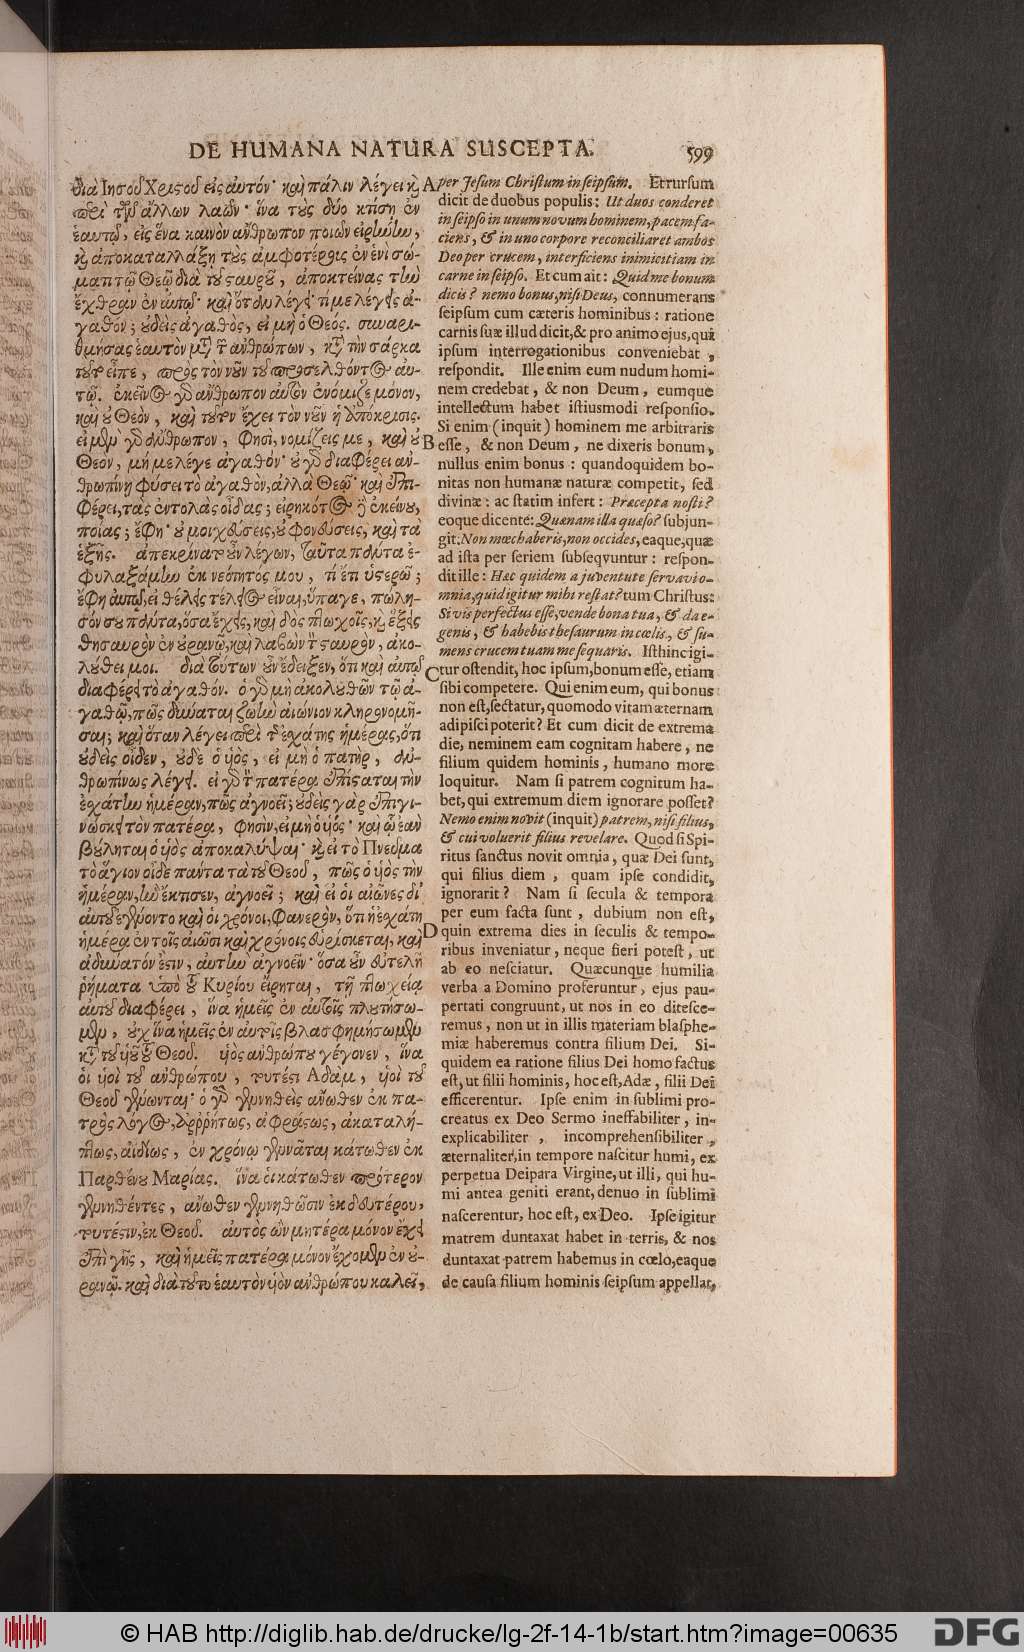 DE HUMANA NATURA SUSCEPTA. 599
διὰ Ἰησοῦ Χριστοῦ εἰς αὐτόν· καὶ πάλιν λέγει καὶ
περὶ τῶν ἄλλων λαῶν· ἵνα τοὺς δύο κτίσῃ ἐν
ἑαυτῷ, εἰς ἕνα καινὸν ἄνθρωπον ποιῶν εἰρήνην,
καὶ ἀποκαταλλάξῃ τοὺς ἀμφοτέρους ἐν ἑνὶ σώ-
ματι τῷ Θεῷ διὰ τοῦ σταυροῦ, ἀποκτείνας τὴν
ἔχθραν ἐν αὐτῷ· καὶ ὅταν λέγῃ· τί με λέγεις ἀ-
γαθόν; οὐδεὶς ἀγαθὸς, εἰ μὴ ὁ Θεός. συναρι-
θμήσας ἑαυτὸν μετὰ τῶν ἀνθρώπων, κατὰ τὴν σάρκα
τοῦτο εἶπε, πρὸς τὸν νοῦν τοῦ προσελθόντος αὐ-
τῷ. ἐκεῖνος γὰρ ἄνθρωπον αὐτὸν ἐνόμιζε μόνον,
καὶ οὐ Θεὸν, καὶ τοῦτον ἔχει τὸν νοῦν ἡ ἀπόκρισις.
εἰ μὲν γὰρ ἄνθρωπον, φησὶ, νομίζεις με, καὶ οὐ
Θεὸν, μή με λέγε ἀγαθόν· οὐ γὰρ διαφέρει ἀν-
θρωπίνῃ φύσει τὸ ἀγαθὸν, ἀλλὰ Θεῷ· καὶ ἐπι-
φέρει, τὰς ἐντολὰς οἶδας; εἰρηκότος δὲ ἐκείνου,
ποίας; ἔφη· οὐ μοιχεύσεις, οὐ φονεύσεις, καὶ τὰ
ἑξῆς. ἀπεκρίνατο οὖν λέγων, ταῦτα πάντα ἐ-
φυλαξάμην ἐκ νεότητός μου, τί ἔτι ὑστερῶ;
ἔφη αὐτῷ, εἰ θέλεις τέλειος εἶναι, ὕπαγε, πώλη-
σόν σου πάντα, ὅσα ἔχεις, καὶ δὸς πτωχοῖς, καὶ ἕξεις
θησαυρὸν ἐν οὐρανῷ, καὶ λαβὼν τὸν σταυρὸν, ἀκο-
λούθει μοι. διὰ τούτων οὖν ἔδειξεν, ὅτι καὶ αὐτῷ
διαφέρει τὸ ἀγαθόν. ὁ γὰρ μὴ ἀκολουθῶν τῷ ἀ-
γαθῷ, πῶς δύναται ζωὴν αἰώνιον κληρονομῆ-
σαι; καὶ ὅταν λέγει περὶ τῆς ἐσχάτης ἡμέρας, ὅτι
οὐδεὶς οἶδεν, οὐδὲ ὁ υἱὸς, εἰ μὴ ὁ πατὴρ, ἀν-
θρωπίνως λέγει. εἰ γὰρ τὸν πατέρα ἐπίσταται τὴν
ἐσχάτην ἡμέραν, πῶς ἀγνοεῖ; οὐδεὶς γὰρ ἐπιγι-
νώσκει τὸν πατέρα, φησὶν, εἰ μὴ ὁ υἱός· καὶ ᾧ ἐὰν
βούληται ὁ υἱὸς ἀποκαλύψαι· καὶ εἰ τὸ Πνεῦμα
τὸ ἅγιον οἶδε πάντα τὰ τοῦ Θεοῦ, πῶς ὁ υἱὸς τὴν
ἡμέραν, ἣν ἔκτισεν, ἀγνοεῖ; καὶ εἰ οἱ αἰῶνες δι'
αὐτοῦ ἐγένοντο καὶ οἱ χρόνοι, φανερὸν, ὅτι ἡ ἐσχάτη
ἡμέρα ἐν τοῖς αἰῶσι καὶ χρόνοις εὑρίσκεται, καὶ
ἀδύνατόν ἐστιν, αὐτὴν ἀγνοεῖν· ὅσα οὖν εὐτελῆ
ῥήματα ὑπὸ τοῦ Κυρίου εἴρηται, τῇ πτωχείᾳ
αὐτοῦ διαφέρει, ἵνα ἡμεῖς ἐν αὐτοῖς πλουτήσω-
μεν, οὐχ ἵνα ἡμεῖς ἐν αὐτοῖς βλασφημήσωμεν
κατὰ τοῦ υἱοῦ τοῦ Θεοῦ. υἱὸς ἀνθρώπου γέγονεν, ἵνα
οἱ υἱοὶ τοῦ ἀνθρώπου, τουτέστι Ἀδὰμ, υἱοὶ τοῦ
Θεοῦ γένωνται· ὁ γὰρ γεννηθεὶς ἄνωθεν ἐκ πα-
τρὸς λόγος, ἀῤῥήτως, ἀφράστως, ἀκαταλή-
πτως, ἀϊδίως, ἐν χρόνῳ γεννᾶται κάτωθεν ἐκ
Παρθένου Μαρίας. ἵνα οἱ κάτωθεν πρότερον
γεννηθέντες, ἄνωθεν γεννηθῶσιν ἐκ δευτέρου,
τουτέστιν, ἐκ Θεοῦ. αὐτὸς οὖν μητέρα μόνον ἔχει
ἐπὶ γῆς, καὶ ἡμεῖς πατέρα μόνον ἔχομεν ἐν οὐ-
ρανῷ. καὶ διὰ τοῦτο ἑαυτὸν υἱὸν ἀνθρώπου καλεῖ,
A
B
C
D
per Jesum Christum in seipsum. Et rursum
dicit de duobus populis: Ut duos conderet
in seipso in unum novum hominem, pacem fa-
ciens, & in uno corpore reconciliaret ambos
Deo per crucem, interficiens inimicitiam in
carne in seipso. Et cum ait: Quid me bonum
dicis? nemo bonus, nisi Deus, connumerans
seipsum cum cæteris hominibus: ratione
carnis suæ illud dicit, & pro animo ejus, qui
ipsum interrogationibus conveniebat,
respondit. Ille enim eum nudum homi-
nem credebat, & non Deum, eumque
intellectum habet istiusmodi responsio.
Si enim (inquit) hominem me arbitraris
esse, & non Deum, ne dixeris bonum,
nullus enim bonus: quandoquidem bo-
nitas non humanæ naturæ competit, sed
divinæ: ac statim infert: Præcepta nosti?
eoque dicente: Quænam illa quæso? subjun-
git: Non mœchaberis, non occides, eaque, quæ
ad ista per seriem subseqvuntur: respon-
dit ille: Hæc quidem a juventute servavi o-
mnia, quid igitur mihi restat? tum Christus:
Si vis perfectus esse, vende bona tua, & da e-
genis, & habebis thesaurum in cœlis, & su-
mens crucem tuam me sequaris. Isthinc igi-
tur ostendit, hoc ipsum, bonum esse, etiam
sibi competere. Qui enim eum, qui bonus
non est, sectatur, quomodo vitam æternam
adipisci poterit? Et cum dicit de extrema
die, neminem eam cognitam habere, ne
filium quidem hominis, humano more
loquitur. Nam si patrem cognitum ha-
bet, qui extremum diem ignorare posset?
Nemo enim novit (inquit) patrem, nisi filius,
& cui voluerit filius revelare. Quod si Spi-
ritus sanctus novit omnia, quæ Dei sunt,
qui filius diem, quam ipse condidit,
ignorarit? Nam si secula & tempora
per eum facta sunt, dubium non est,
quin extrema dies in seculis & tempo-
ribus inveniatur, neque fieri potest, ut
ab eo nesciatur. Quæcunque humilia
verba a Domino proferuntur, ejus pau-
pertati congruunt, ut nos in eo ditesce-
remus, non ut in illis materiam blasphe-
miæ haberemus contra filium Dei. Si-
quidem ea ratione filius Dei homo factus
est, ut filii hominis, hoc est, Adæ, filii Dei
efficerentur. Ipse enim in sublimi pro-
creatus ex Deo Sermo ineffabiliter, in-
explicabiliter, incomprehensibiliter,
æternaliter, in tempore nascitur humi, ex
perpetua Deipara Virgine, ut illi, qui hu-
mi antea geniti erant, denuo in sublimi
nascerentur, hoc est, ex Deo. Ipse igitur
matrem duntaxat habet in terris, & nos
duntaxat patrem habemus in cœlo, eaque
de causa filium hominis seipsum appellat,
© HAB http://diglib.hab.de/drucke/lg-2f-14-1b/start.htm?image=00635
DFG